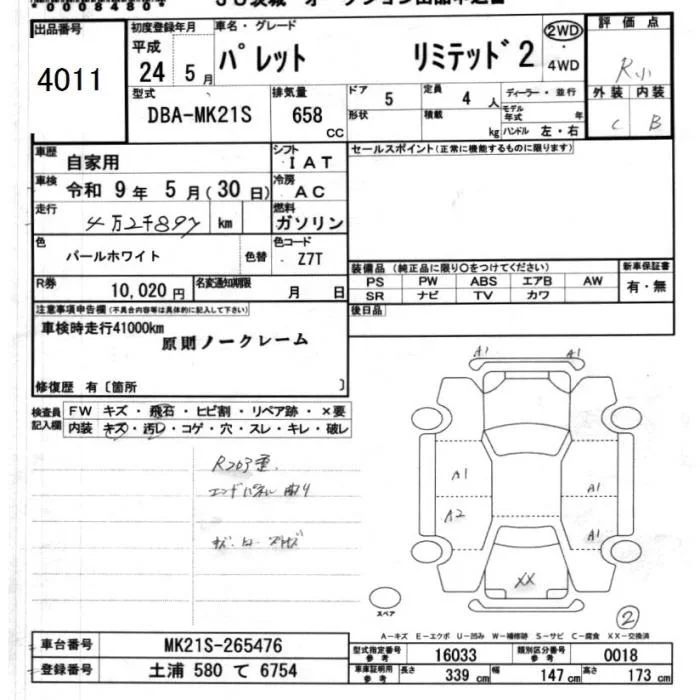 *0084804*
出品番号
4011
初度登録年月
平成
24 5 月
車名・グレード
パレット リミテッド2
2WD
・
4WD
評価点
R小
外装 内装
C B
型式
DBA-MK21S
排気量
658
CC
ドア
5
形状
定員
4 人
積載
kg
ディーラー・並行
モデル
年式 年
ハンドル 左・右
車歴
自家用
シフト
IAT
車検
令和 9 年 5 月 (30 日)
冷房
AC
走行
4万2千897 km
燃料
ガソリン
色
パールホワイト
色替
色コード
Z7T
R券
10,020 円
名変通知期限
月 日
セールスポイント(正常に機能するものに限ります)
装備品 (純正品に限り○をつけてください)
PS PW ABS エアB AW
SR ナビ TV カワ
新車保証書
有・無
後日品
注意事項申告欄 (不具合内容等は具体的に記入して下さい)
車検時走行41000km
原則ノークレーム
修復歴 有〔箇所 〕
検査員
記入欄
FW キズ・飛石・ヒビ割・リペア跡・×要
内装 キズ・汚レ・コゲ・穴・スレ・キレ・破レ
エンドパネル 曲り
A1 A1
A1 A1
A2 A1
XX
スペア
2
A―キズ E―エクボ U―凹み W―補修跡 S―サビ C―腐食 XX―交換済
車台番号
MK21S-265476
登録番号
土浦 580 て 6754
型式指定番号
参考
16033
類別区分番号
参考
0018
車庫証明用
参考
長さ 339 cm 幅 147 cm 高さ 173 cm